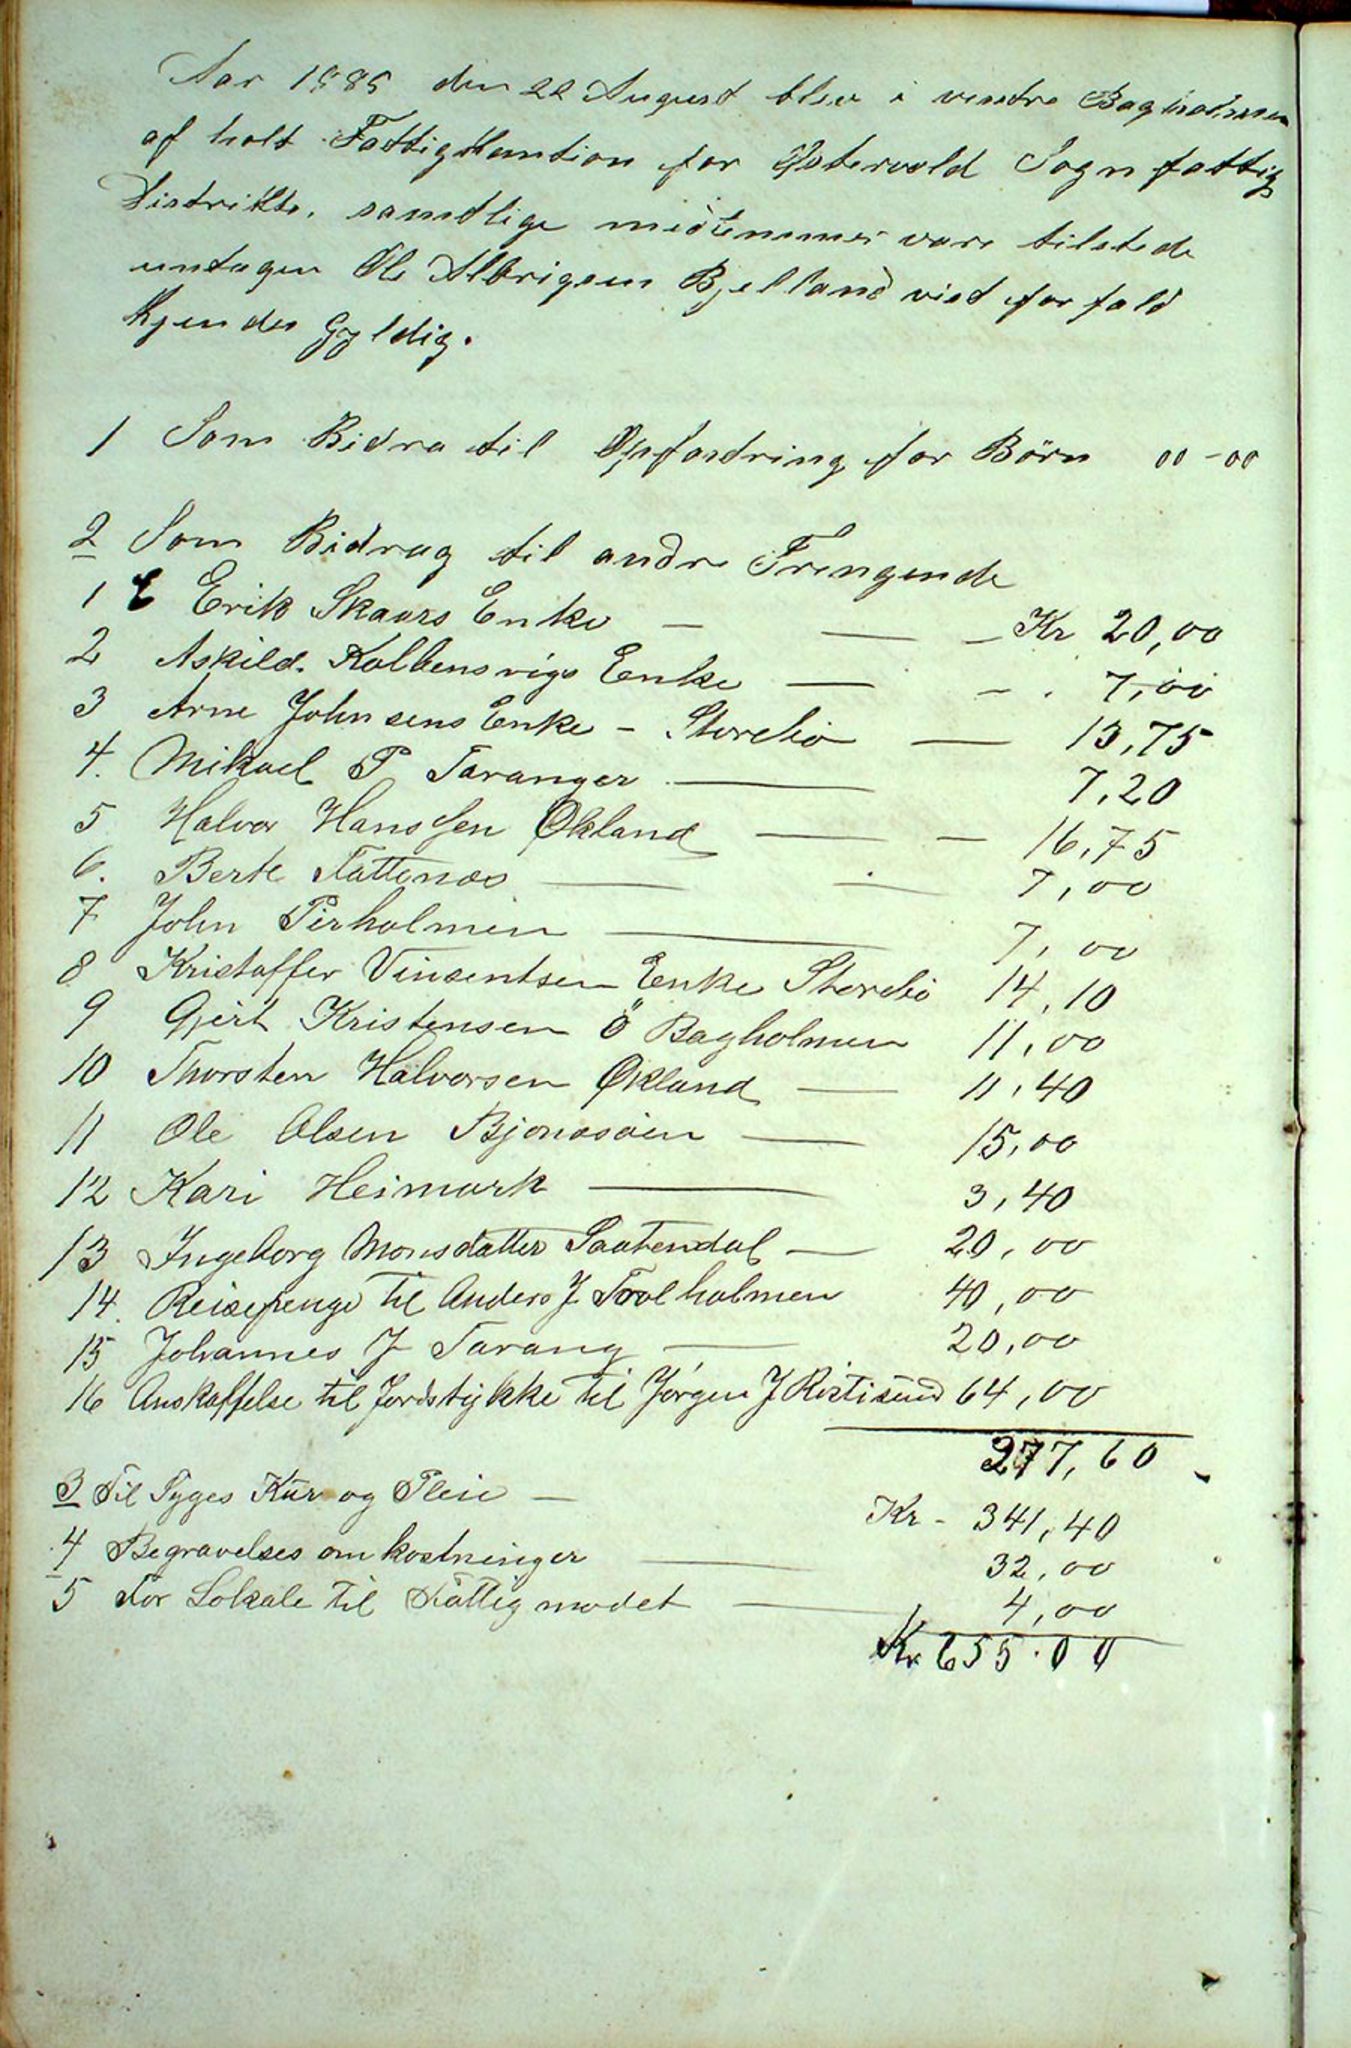 Aar 1885 den 22 August blev i vesstre Bagholmen
af holt Fattigkomtion for Østervold Sogn fattig
Distrikts, samtlige medlemmer vare tilstede
untagen Ole Albrigsen Bjelland vist for fald
kjendes Gyldig.
1 Som Bidra til Opfostring for Børn 00-00
2 Som Bidrag til andre Trengende
1 E Erik Skaars Enke — — – Kr 20,00
2 Askild Kolbensvigs Enke — – . 7,00
3 Arne Johnsens Enke – Storebø — 13,75
4. Mikael P Taranger — 7,20
5 Halvor Hanssen Økland — – 16,75
6. Berte Tættenæs — — 7,00
7 John Pirholmen — 7,00
8 Kristoffer Vinsentsen Enke Storebø 14,10
9 Gjert Kristensen Ö Bagholmen 11,00
10 Thorsten Halvorsen Økland — 11,40
11 Ole Olsen Bjonesøen — 15,00
12 Kari Heimark — 3,40
13 Ingeborg Monsdatter Saatendal — 20,00
14. Reisepenge til Anders J Trolholmen 40,00
15 Johannes J Tarang — 20,00
16 Anskaffelse til Jordstykke til Jørgen J Rostisund 64,00
277,60
3 Til Syges Kur og Pleie – Kr - 341,40
4 Begravelses omkostninger — 32,00
5 For Lokale til Fattigmødet — 4,00
Kr 655.00